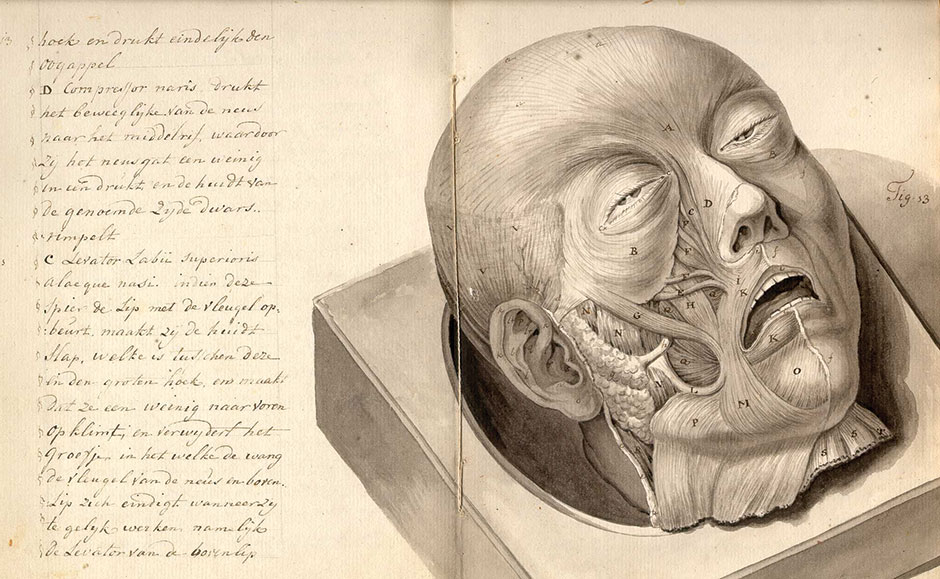 hoek en drukt eindelijk den
oogappel
D Compressor naris, drukt
het beweeglijke van de neus
naar het middelrif, waardoor
Zij het neusgat een weinig
in een drukt en de huidt van
de genoemde Zijde dwars..
rimpelt
C Levator Labii superioris
alaeque nasi. indien deze
spier de Lip met de vleugel op,
:beurt, maakt zij de huidt
slap, welke is tusschen deze
en den groten hoek, en maakt
dat ze een weinig naar voren
opklimt; en verwydert het
groefje, in het welke de wang
de vleugel van de neus en boven.
Lip zich eindigt wanneer zy
te gelyk werken namelijk
de Levator van de bovenlip
Fig. 13
A
D
C
B
F
E
G
R
H
I
K
N
N
Q
L
K
O
M
P
S
V
V